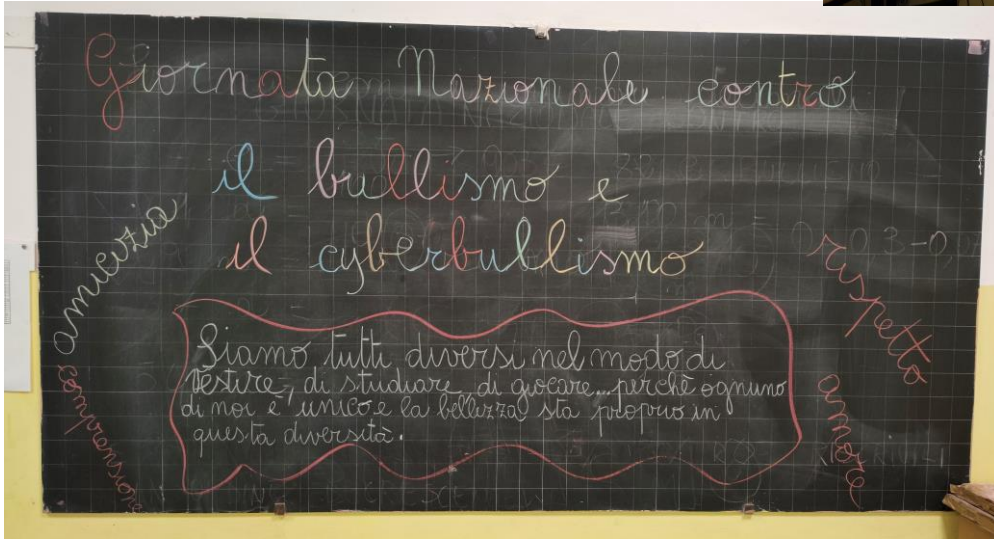 Giornata Nazionale contro
il bullismo e
il cyberbullismo
amicizia
rispetto
Siamo tutti diversi nel modo di
vestire, di studiare, di giocare... perchè ognuno
di noi è unico e la bellezza sta proprio in
questa diversità.
comprensione
amore